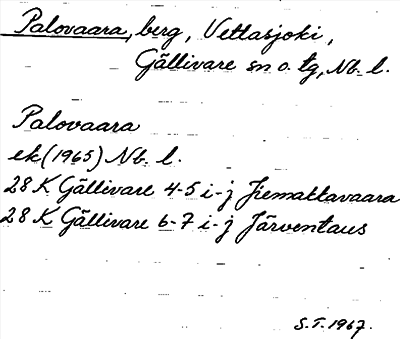 Palovaara, berg, Vettasjoki,
Gällivare sn o. tg, Nb. l.
Palovaara
ek (1965) Nb. l.
28 K Gällivare 4-5 i-j Jiemaltavaara
28 K Gällivare 6-7 i-j Järventaus
S.T. 1967.